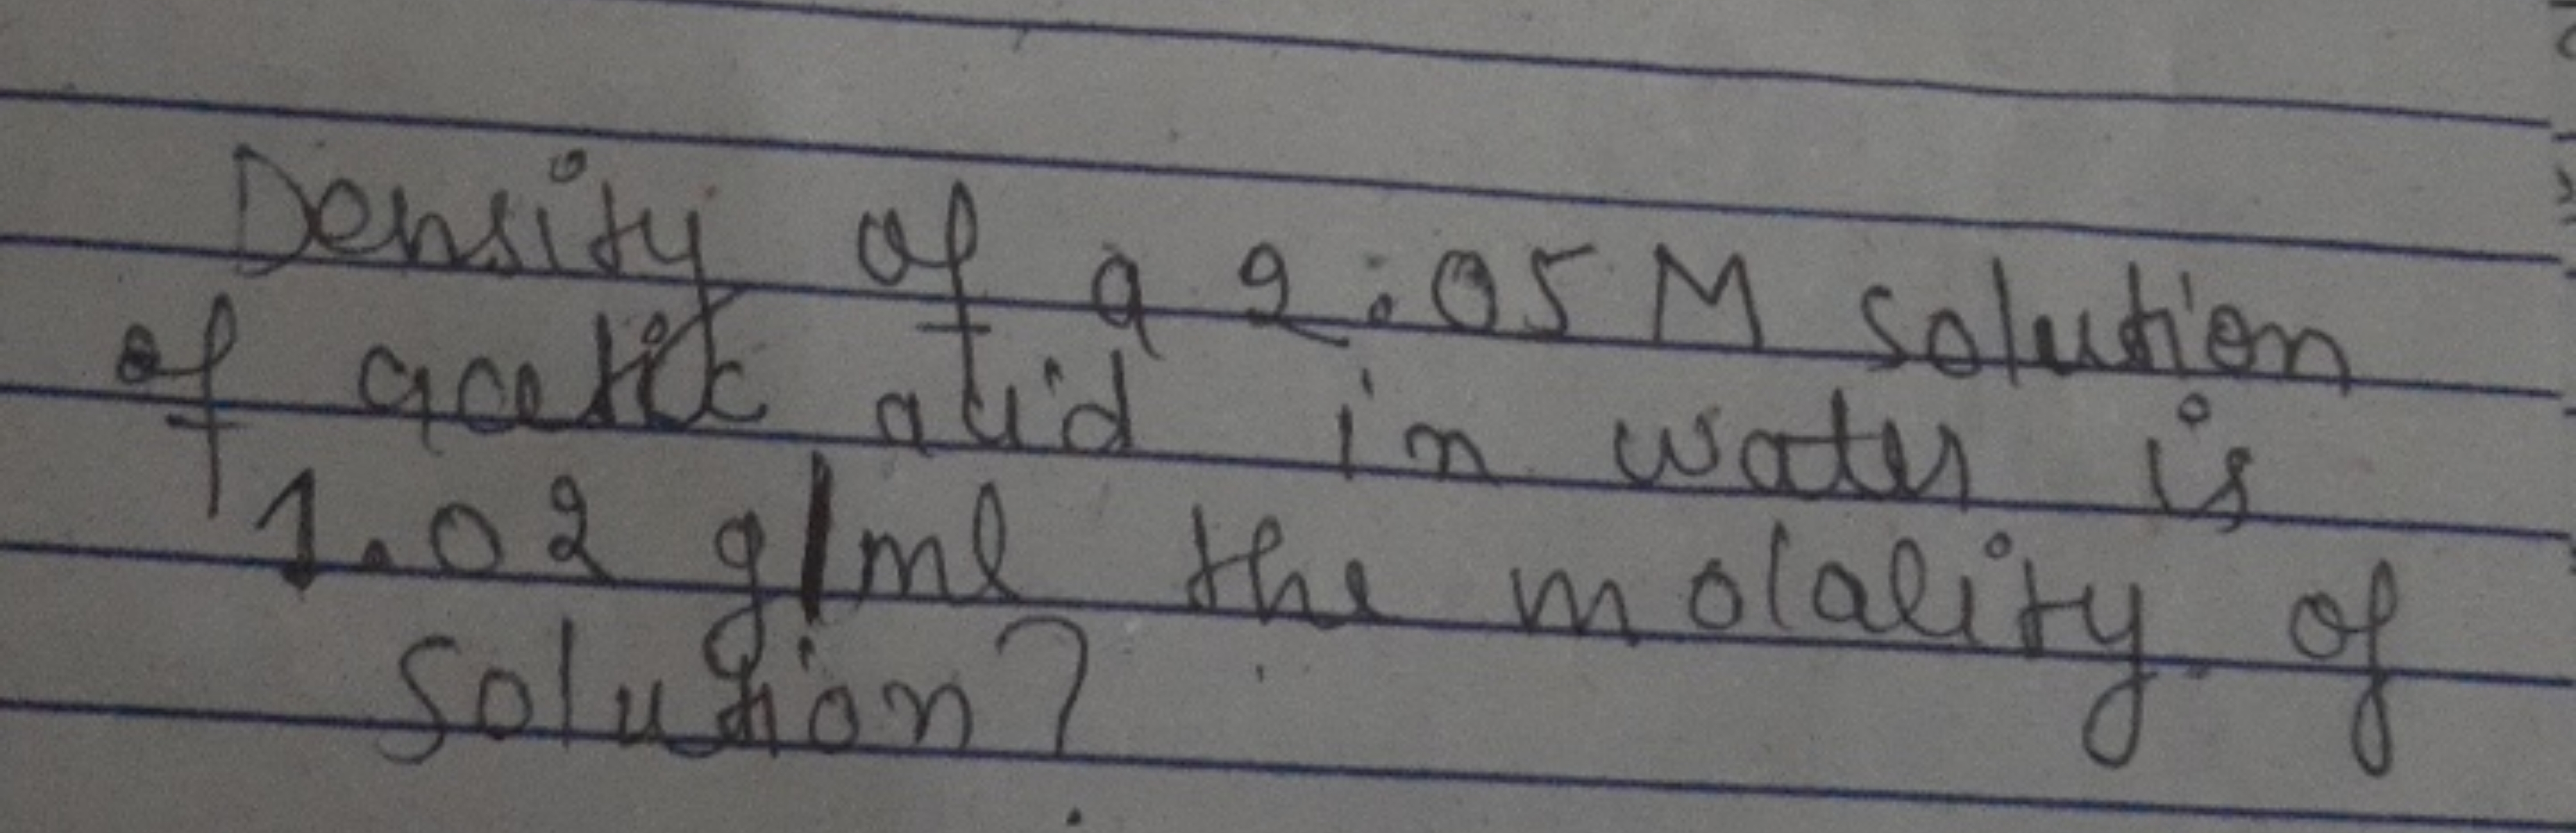 Density of a 2.05 M solution
of acetic acid in water is
1.02 g/ml the molality of
solution?